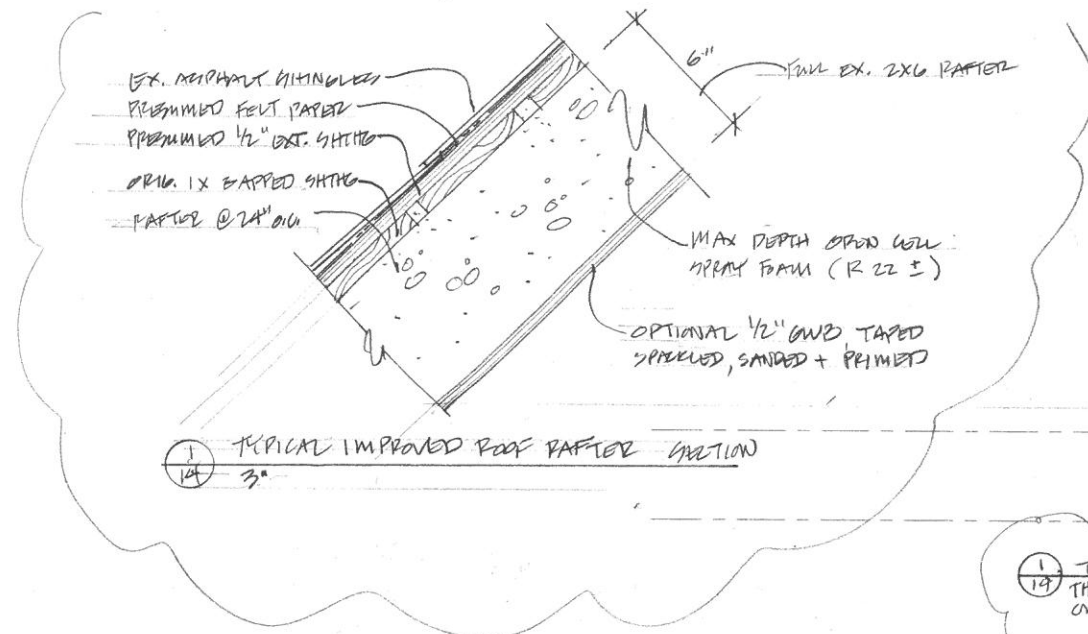 EX. ASPHALT SHINGLES
PRESUMED FELT PAPER
PRESUMED 1/2" EXT. SHTHG
ORIG. 1X GAPPED SHTHG
RAFTER @ 24" O.C.
6"
FULL EX. 2X6 RAFTER
MAX DEPTH OPEN CELL
SPRAY FOAM (R 22 ±)
OPTIONAL 1/2" GWB, TAPED
SPACKLED, SANDED + PRIMED
1
14
TYPICAL IMPROVED ROOF RAFTER SECTION
3"
1
14
T
TH